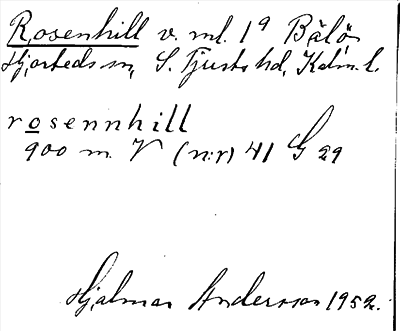 Rosenhill v. ml. 1a Bälö
Hjorteds sn, S. Tjusts hd, Kalm. l.
rosennhill
900 m V (n:r) 41 G 29
Hjalmar Andersson 1952.